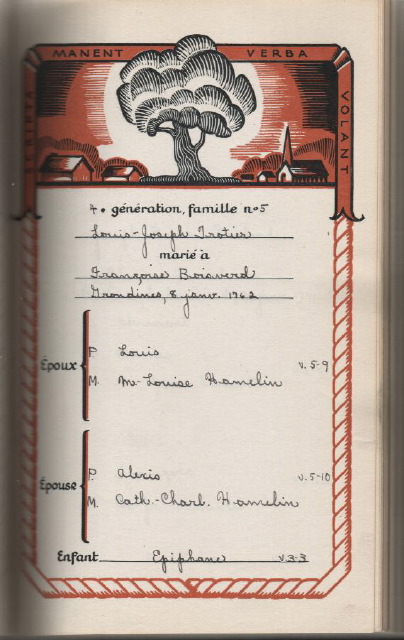 SCRIPTA MANENT VERBA VOLANT
4e génération, famille no 5
Louis-Joseph Trotier
marié à
Françoise Boisverd
Grondines, 8 janv. 1762
Époux
P. Louis v. 5-9
M. M.-Louise Hamelin
Épouse
P. Alexis v. 5-10
M. Cath.-Charl. Hamelin
Enfant Epiphane v. 3-3